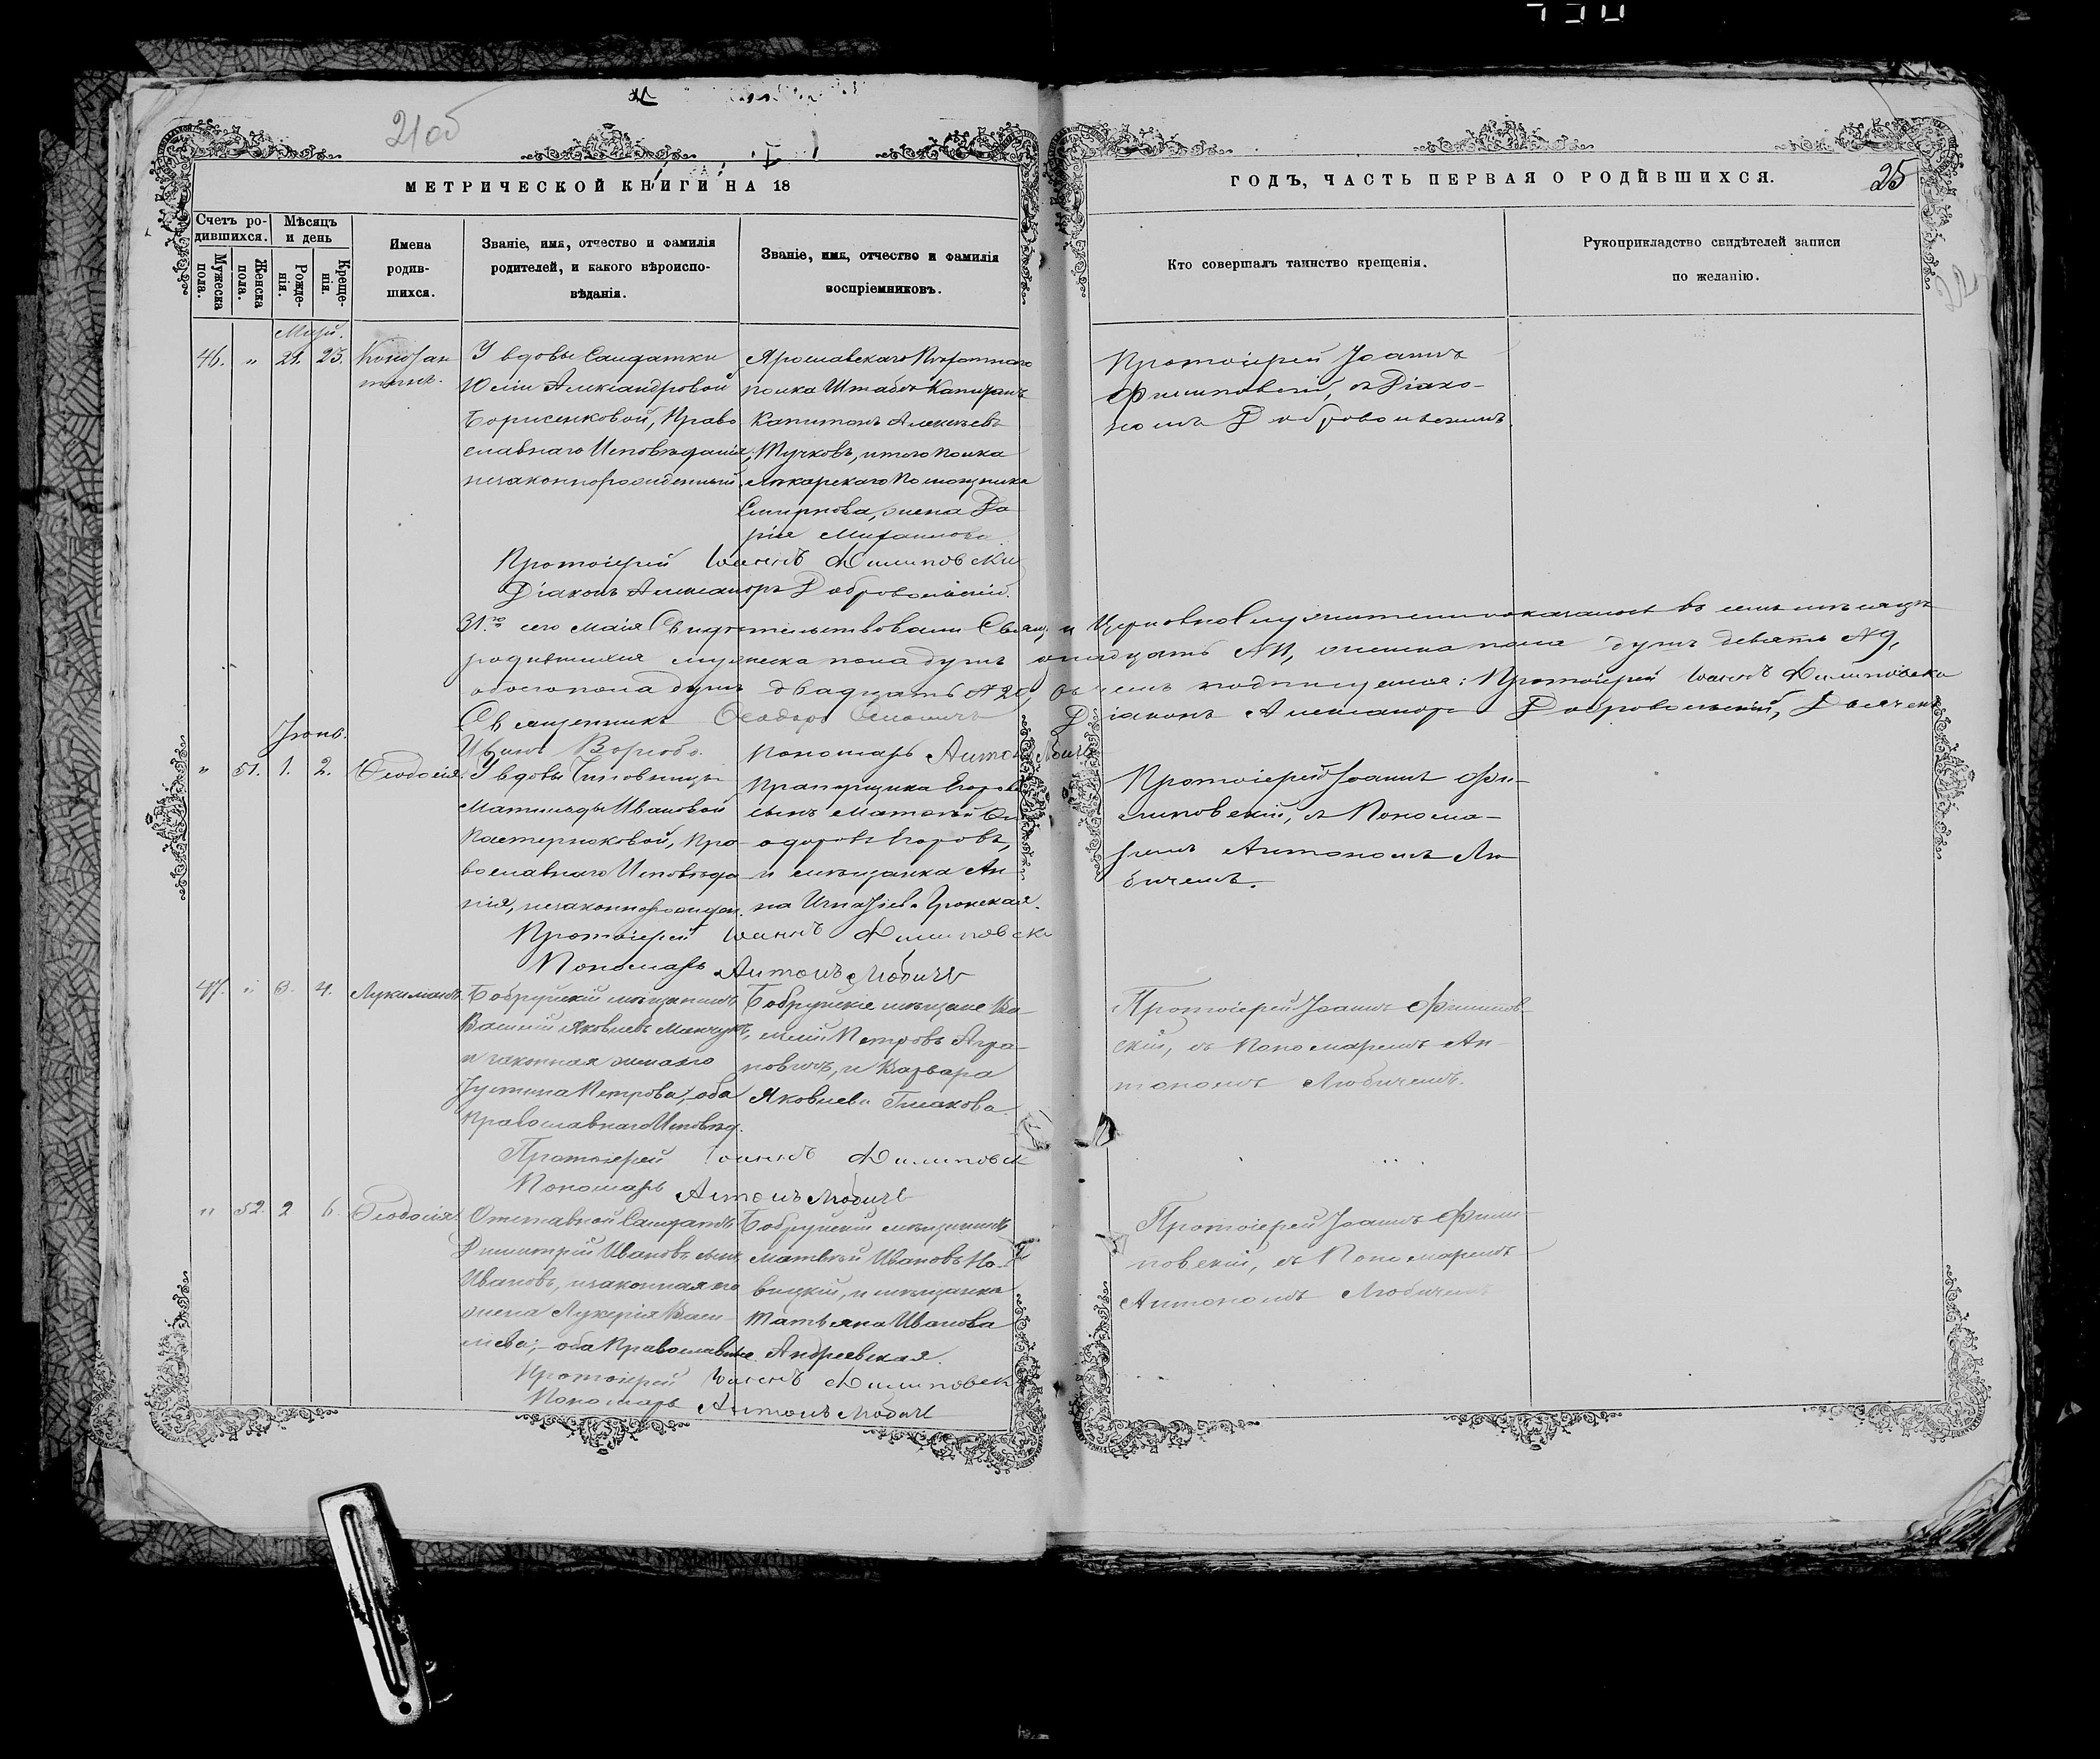 21об
МЕТРИЧЕСКОЙ КНИГИ НА 18
ГОДЪ, ЧАСТЬ ПЕРВАЯ О РОДИВШИХСЯ.
25
Счетъ ро-
дившихся.
Мѣсяцъ
и день
Мужеска
пола.
Женска
пола.
Рожде-
нія.
Креще-
нія.
Имена
родив-
шихся.
Званіе, имя, отчество и фамилія
родителей, и какого вѣроиспо-
вѣданія.
Званіе, имя, отчество и фамилія
воспріемниковъ.
Кто совершалъ таинство крещенія.
Рукоприкладство свидѣтелей записи
по желанію.
Май.
46. " 25.
У вдовы Солдатки
Юліи Александровой
Борисенковой, Право
славнаго Исповѣданія,
незаконнорожденный
Ярославскаго Пѣхотнаго
полка Штабсъ Капитанъ
Капитонъ Алексѣевъ
Тучковъ, и того полка
лекарскаго Помощника
Смирнова, жена Да
рія
Протоіерей Іоаннъ
Филиповскій, съ Діако-
номъ Добровольскимъ.
Протоіерей Іоаннъ Филиповски
Діаконъ Александръ Добровольскій.
31.го сего Маія Свидѣтельствовали Свящ. и Церковнослужители въ семъ мѣсяцѣ
родившихся мужеска пола душъ женска пола душъ девять №9,
обоего пола душъ двадцать №20, въ чемъ подписуемся: Протоіерей Іоаннъ Филиповски
Священникъ Ѳеодоръ Діаконъ Александръ Добровольскій, Дьячекъ
Іюнь.
Пономарь Антонъ Любичъ
" 51. 1. 2. Ѳеодосія.
У вдовы Чиновницы
Матильды Ивановой
Пастернаковой, Пра-
вославнаго Исповѣда
нія, незаконнорожден.
Прапорщика Егорова
сынъ Матвѣй
Егоровъ,
и мѣщанка Ан-
на
Протоіерей Іоаннъ Фи-
липовскій, съ Понома-
ремъ Антономъ Лю-
бичемъ.
Протоіерей Іоаннъ Филиповски
Пономарь Антонъ Любичъ
47. " 3. 4.
Бобруйскій мѣщанинъ
Василій Яковлевъ
и законная жена его
Іустина Петрова, оба
Православнаго Исповѣд.
Бобруйскіе мѣщане Ва-
силій Петровъ Агра-
новичъ, и Варвара
Яковлева
Протоіерей Іоаннъ Филипов-
скій, съ Пономаремъ Ан-
тономъ Любичемъ.
Протоіерей Іоаннъ Филиповск
Пономарь Антонъ Любичъ
" 52. 2 6. Ѳеодосія
Отставной Солдатъ
Димитрій Ивановъ сынъ
Ивановъ, и законная его
жена Лукерія Васи-
льева; оба Православные.
Бобруйскій мѣщанинъ
Матвѣй Ивановъ Но-
вицкій, и мѣщанка
Татьяна Иванова
Андреевская.
Протоіерей Іоаннъ Фили-
повскій, съ Пономаремъ
Антономъ Любичемъ
Протоіерей Іоаннъ Филиповск
Пономарь Антонъ Любичъ